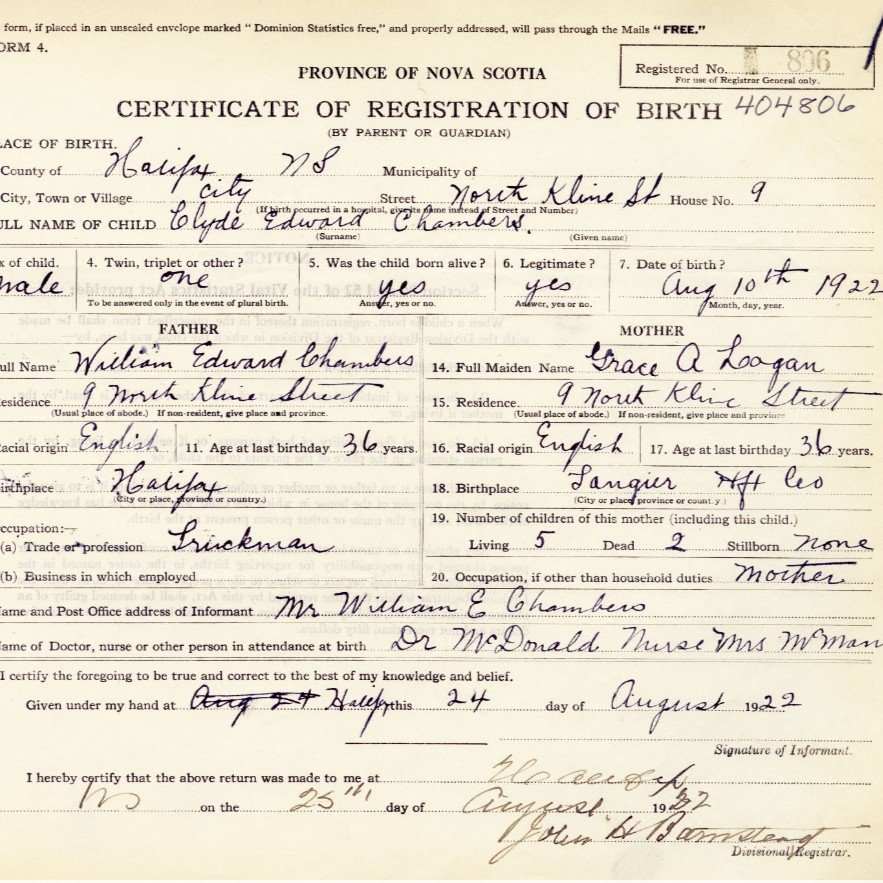 form, if placed in an unsealed envelope marked "Dominion Statistics free," and properly addressed, will pass through the Mails "FREE."
ORM 4.
Registered No. 806
For use of Registrar General only.
PROVINCE OF NOVA SCOTIA
CERTIFICATE OF REGISTRATION OF BIRTH 404806
(BY PARENT OR GUARDIAN)
LACE OF BIRTH.
County of Halifax NS Municipality of
City, Town or Village City Street North Kline St House No. 9
(If birth occurred in a hospital, give its name instead of Street and Number)
ULL NAME OF CHILD Clyde Edward Chambers.
(Surname) (Given name)
x of child. 4. Twin, triplet or other? 5. Was the child born alive? 6. Legitimate? 7. Date of birth?
male one yes yes Aug 10th 1922
To be answered only in the event of plural birth. Answer, yes or no. Answer, yes or no. Month, day, year.
FATHER MOTHER
ull Name William Edward Chambers 14. Full Maiden Name Grace A Logan
Residence 9 North Kline Street 15. Residence. 9 North Kline Street
(Usual place of abode.) If non-resident, give place and province. (Usual place of abode.) If non-resident, give place and province
Racial origin English 11. Age at last birthday 36 years. 16. Racial origin English 17. Age at last birthday 36 years.
irthplace Halifax 18. Birthplace Tangier Hfx Co
(City or place, province or country.) (City or place, province or country)
ccupation:— 19. Number of children of this mother (including this child.)
(a) Trade or profession Truckman Living 5 Dead 2 Stillborn None
(b) Business in which employed 20. Occupation, if other than household duties Mother
Name and Post Office address of Informant Mr William E Chambers
Name of Doctor, nurse or other person in attendance at birth Dr McDonald Nurse Mrs McMan
I certify the foregoing to be true and correct to the best of my knowledge and belief.
Given under my hand at Aug 24 Halifx this 24 day of August 1922
Signature of Informant.
I hereby certify that the above return was made to me at Halifax
NS on the 25th day of August 1922
John H Barnstead
Divisional Registrar.